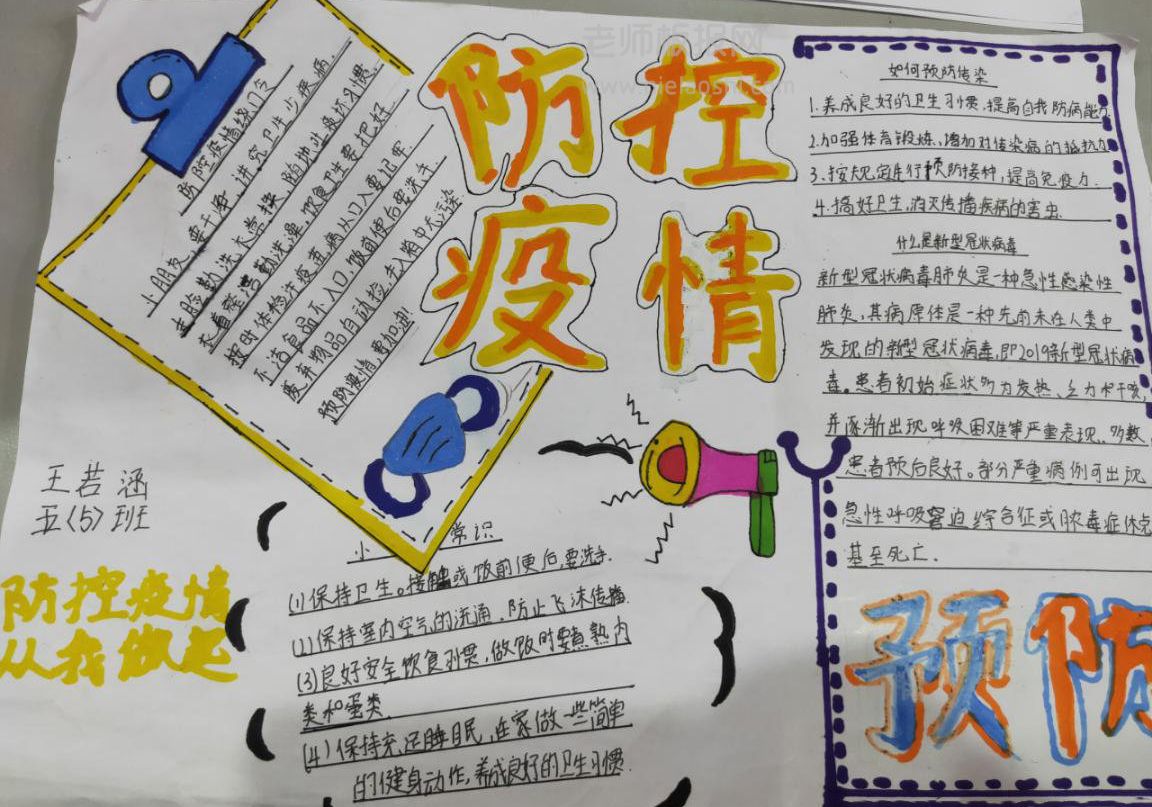 老师板报网
防控
疫情
防控疫情绕口令
小朋友,要干净,讲究卫生少疾病,
按时体检注疫苗,病从口入要记牢
不洁食品不入口,饭前便后要洗手
废弃物品自动捡,先入箱中无污染
预防疫情要加油!
如何预防传染
1.养成良好的卫生习惯,提高自我防病能力
2.加强体育锻炼,增加对传染病的抵抗力
3.按规定进行预防接种,提高免疫力.
4.搞好卫生,消灭传播疾病的害虫.
什么是新型冠状病毒
新型冠状病毒肺炎是一种急性感染性
肺炎,其病原体是一种先前未在人类中
发现的新型冠状病毒,即2019新型冠状病
毒。患者初始症状多为发热、乏力和干咳,
并逐渐出现呼吸困难等严重表现.多数
患者预后良好。部分严重病例可出现
急性呼吸窘迫综合征或脓毒症休克
甚至死亡.
预防
王若涵
五〈5〉班
防控疫情
从我做起
小 常识
(1)保持卫生。接触或饭前便后,要洗手.
(2)保持室内空气的流通、防止飞沫传播
(3)良好安全饮食习惯,做饭时要煮熟肉
类和蛋类.
(4)保持充足睡眠,在家做一些简单
的健身动作,养成良好的卫生习惯.